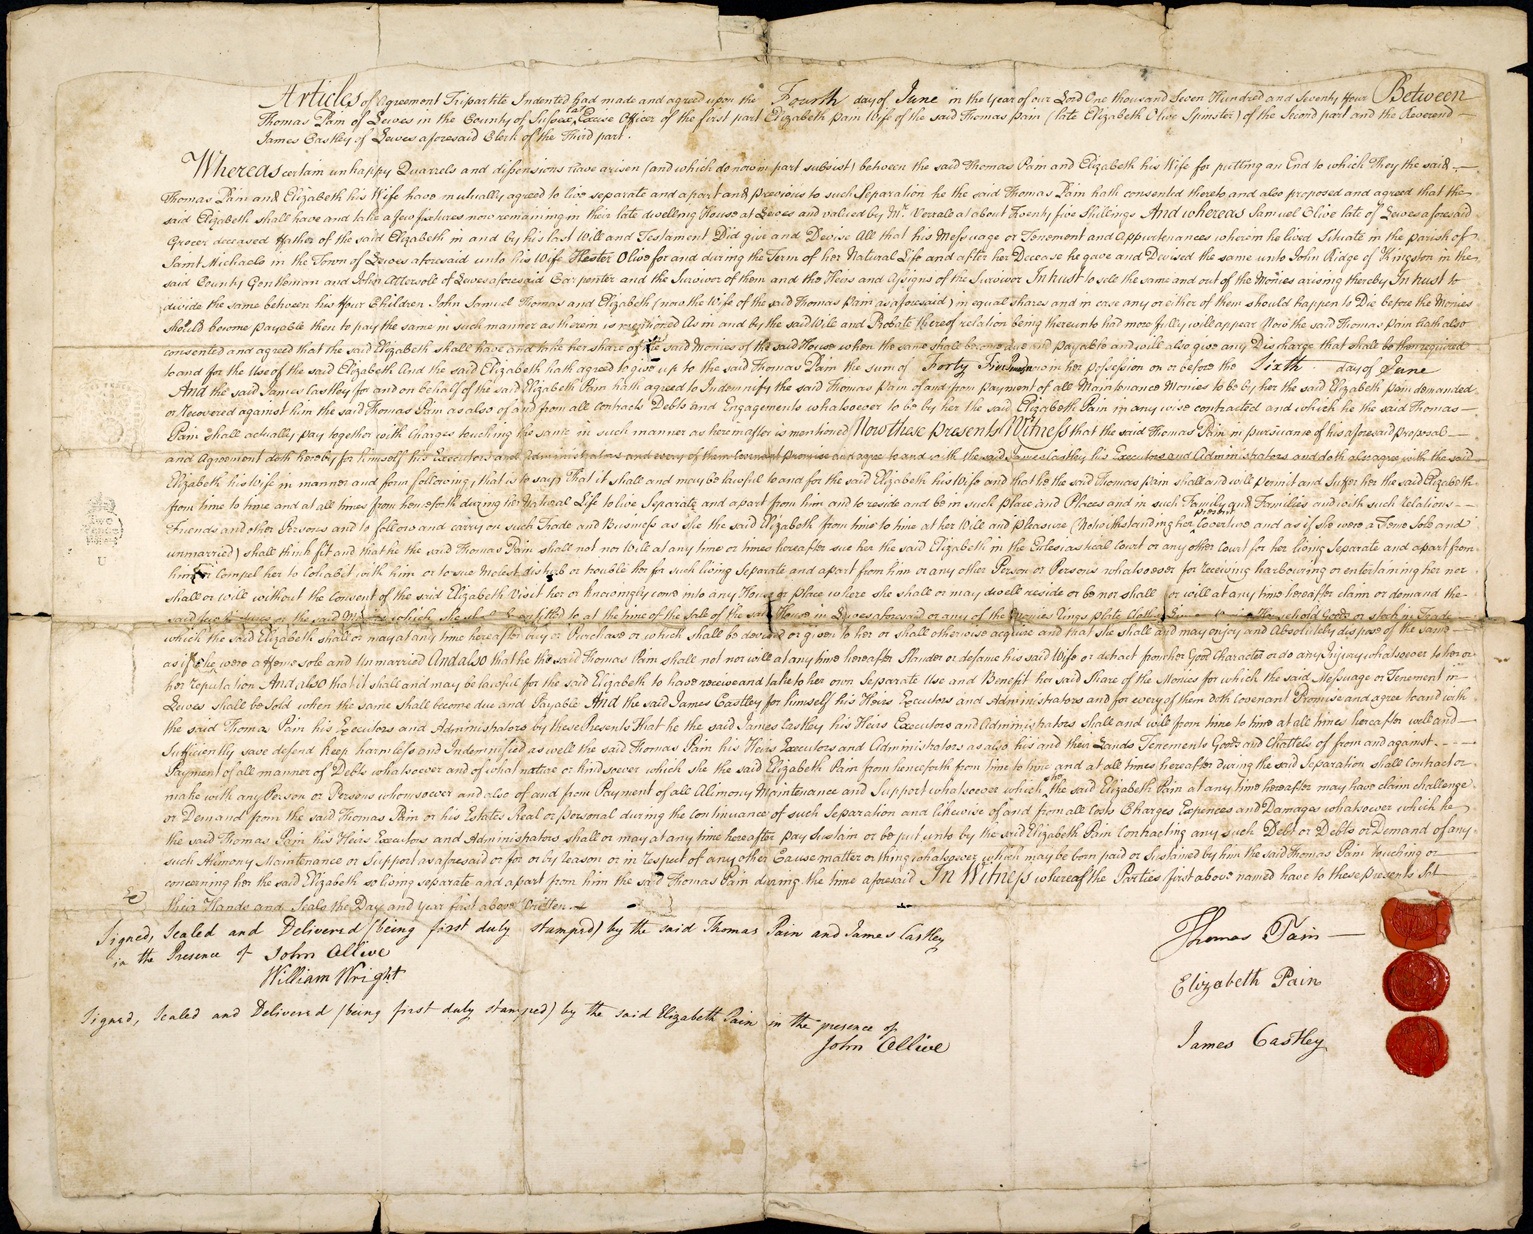 Articles of Agreement Tripartite Indented had made and agreed upon the Fourth day of June in the Year of our Lord One thousand Seven Hundred and Seventy four Between
Thomas Pain of Lewes in the County of Sussex late Excise Officer of the first part Elizabeth Pain Wife of the said Thomas Pain (late Elizabeth Olive Spinster) of the Second part and the Reverend
James Castley of Lewes aforesaid Clerk of the Third part.
Whereas certain unhappy Quarrels and dissensions have arisen (and which do now in part subsist) between the said Thomas Pain and Elizabeth his Wife for putting an End to which They the said
Thomas Pain and Elizabeth his Wife have mutually agreed to live separate and apart and previous to such Separation he the said Thomas Pain hath consented thereto and also proposed and agreed that the
said Elizabeth shall have and take a few fixtures now remaining in their late dwelling House at Lewes and valued by Mr. Verrale at about Twenty five Shillings And whereas Samuel Olive late of Lewes aforesaid
Grocer deceased Father of the said Elizabeth in and by his last Will and Testament Did give and Devise All that his Messuage or Tenement and Appurtenances wherein he lived Situate in the parish of
Saint Michaels in the Town of Lewes aforesaid unto his Wife Hester Olive for and during the Term of her Natural Life and after her Decease he gave and Devised the same unto John Ridge of Kingston in the
said County Gentleman and John Attersoll of Lewes aforesaid Carpenter and the Survivor of them and the Heirs and Assigns of the Survivor In trust to sell the same and out of the Monies arising thereby In trust to
divide the same between his four Children John Samuel Thomas and Elizabeth (now the Wife of the said Thomas Pain as aforesaid) in equal shares and in case any or either of them should happen to Die before the Monies
should become payable then to pay the same in such manner as therein is mentioned As in and by the said Will and Probate thereof relation being thereunto had more fully will appear Now the said Thomas Pain hath also
consented and agreed that the said Elizabeth shall have and take her share of the said Monies of the said House when the same shall become due and payable and will also give any Discharge that shall be then required
to and for the Use of the said Elizabeth And the said Elizabeth hath agreed to give up to the said Thomas Pain the sum of Forty Five now in her possession on or before the Sixth day of June
And the said James Castley for and on behalf of the said Elizabeth Pain hath agreed to Indemnify the said Thomas Pain of and from payment of all Maintenance Monies to be by her the said Elizabeth Pain demanded
or Recovered against him the said Thomas Pain as also of and from all Contracts Debts and Engagements whatsoever to be by her the said Elizabeth Pain in any wise contracted and which he the said Thomas
Pain shall actually pay together with Charges touching the same in such manner as hereinafter is mentioned Now these Presents Witness that the said Thomas Pain in pursuance of his aforesaid Proposal
and Agreement doth hereby for himself his Executors and Administrators and every of them Covenant Promise and agree to and with the said James Castley his Executors and Administrators and doth also agree with the said
Elizabeth his Wife in manner and form following, that is to say That it shall and may be lawful to and for the said Elizabeth his Wife and that he the said Thomas Pain shall and will permit and Suffer her the said Elizabeth
from time to time and at all times from henceforth during her Natural Life to live Separate and apart from him and to reside and be in such Place and Places and in such Family and Families and with such Relations
Friends and other Persons and to follow and carry on such Trade and Business as she the said Elizabeth from time to time at her Will and Pleasure (Notwithstanding her present Coverture and as if she were a Feme Sole and
unmarried) shall think fit and that he the said Thomas Pain shall not nor will at any time or times hereafter sue her the said Elizabeth in the Ecclesiastical Court or any other Court for her living Separate and apart from
him or Compel her to Cohabit with him or to sue Molest disturb or trouble her for such living Separate and apart from him or any other Person or Persons whatsoever for receiving harbouring or entertaining her nor
shall or will without the Consent of the said Elizabeth Visit her or knowingly come into any House or Place where she shall or may dwell reside or be nor shall or will at any time hereafter claim or demand the
said or the said Monies which she shall be intitled to at the time of the Sale of the said House in Lewes aforesaid or any of the Monies Rings Plate Cloths Household Goods or stock in Trade
which the said Elizabeth shall or may at any time hereafter buy or Purchase or which shall be devised or given to her or shall otherwise acquire and that she shall and may enjoy and Absolutely dispose of the same
as if she were a Feme sole and Unmarried And also that he the said Thomas Pain shall not nor will at any time hereafter Slander or defame his said Wife or detract from her Good Character or do any Injury whatsoever to her or
her reputation And also that it shall and may be lawful for the said Elizabeth to have receive and take to her own Separate Use and Benefit her said Share of the Monies for which the said Messuage or Tenement in
Lewes shall be Sold when the same shall become due and Payable And the said James Castley for himself his Heirs Executors and Administrators and for every of them doth Covenant Promise and agree to and with
the said Thomas Pain his Executors and Administrators by these Presents That he the said James Castley his Heirs Executors and Administrators shall and will from time to time at all times hereafter well and
Sufficiently save defend keep harmless and Indemnified as well the said Thomas Pain his Heirs Executors and Administrators as also his and their Lands Tenements Goods and Chattels of from and against
Payment of all manner of Debts whatsoever and of what nature or kind soever which she the said Elizabeth Pain from henceforth from time to time and at all times hereafter during the said Separation shall Contract or
make with any Person or Persons whomsoever and also of and from Payment of all Alimony Maintenance and Support whatsoever which she the said Elizabeth Pain at any time hereafter may have claim challenge
or Demand from the said Thomas Pain or his Estate Real or personal during the continuance of such Separation and likewise of and from all Costs Charges Expences and Damages whatsoever which he
the said Thomas Pain his Heirs Executors and Administrators shall or may at any time hereafter pay sustain or be put unto by the said Elizabeth Pain Contracting any such Debt or Debts or Demand of any
such Alimony Maintenance or Support as aforesaid or for or by Reason or in respect of any other Cause matter or thing whatsoever which may be born paid or Sustained by him the said Thomas Pain touching or
concerning her the said Elizabeth so living separate and apart from him the said Thomas Pain during the time aforesaid In Witness whereof the Parties first above named have to these presents Set
their Hands and Seals the Day and year first above Written
Signed, Sealed and Delivered (being first duly stamped) by the said Thomas Pain and James Castley
in the Presence of John Ollive
William Wright
Signed, Sealed and Delivered (being first duly stamped) by the said Elizabeth Pain in the presence of
John Ollive
Thomas Pain
Elizabeth Pain
James Castley